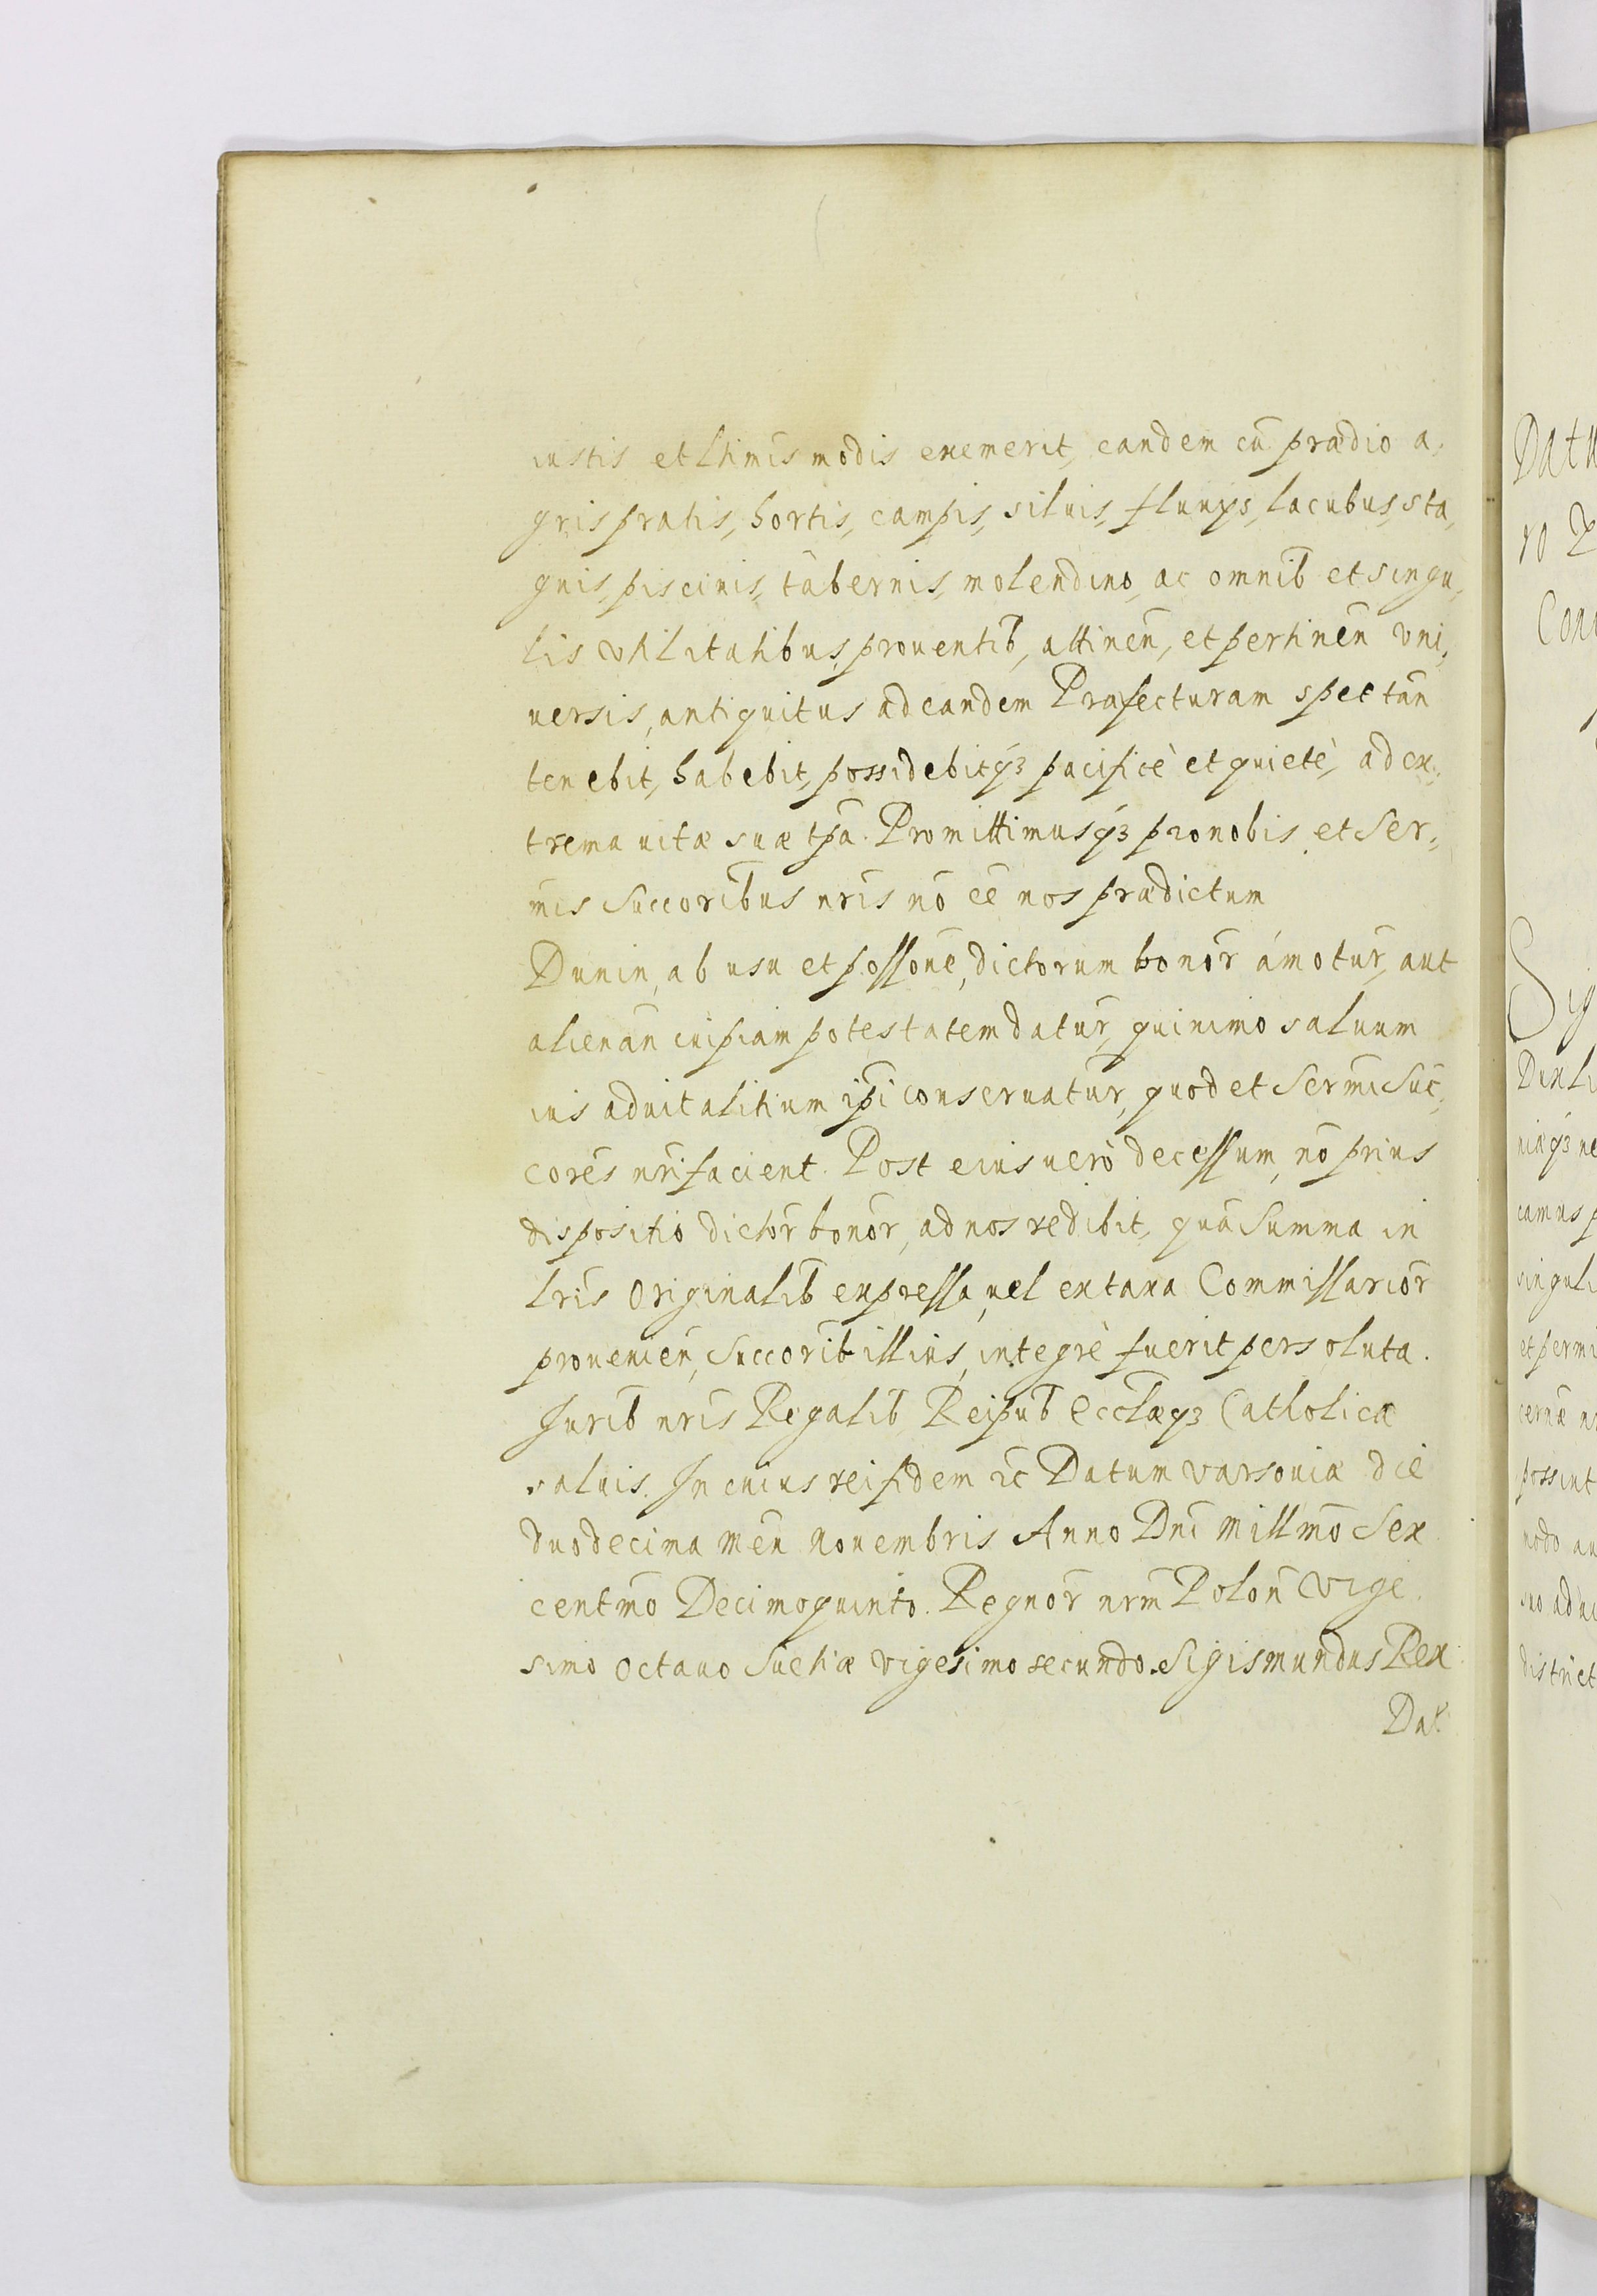 iustis et ltimis modis exemerit, eandem cũ prædio a,
gris pratis, hortis, campis, siluis, fluuys, lacubus, sta,
gnis, piscinis, tabernis, molendino, ac omnib̃ et singu,
lis vtilitatibus, prouentib̃, attineñ, et pertineñ vni,
uersis, antiquitus ad eandem Præfecturam spectañ
tenebit, habebit, possidebitq₃ pacificè et quietè, ad ex,
trema uitæ suæ tp̃a. Promittimusq₃ pro nobis et Ser,
m̃is Succorib̃us nr̃is nõ eẽ nos prædictum
Dunin, ab usu et possoñe, dictorum bonor̃ ámotur̃, aut
alienañ cuipiam potestatem datur̃, quinimo saluum
ius aduitalitium ip̃i conseruatur̃, quod et Serm̃i Suc̃,
corẽs nr̃i facient. Post eius uerò decessum, nõ prius
dispositio dictor̃ bonor̃, ad nos redibit, quã Summa in
lr̃is Originalib̃ expressa, uel ex taxa Commissarior̃
prouenieñ, Succorib̃ illius, integrè fuerit persoluta.
Jurib̃ nr̃is Regalib̃ Reipub̃ Eccl̃æq₃ Catholicæ
saluis. In cuius rei fidem ꝛc̃ Datum Varsouiæ die
duodecima Meñ Nouembris Anno Dñi Millm̃o Sex
centm̃o Decimoquinto. Regnor̃ nrm̃ Poloñ Vige
simo Octauo Suetiæ Vigesimo secundo. Sigismundus Rex
Dat
Datu
ro
Sig
singuli
et permi
possint
district